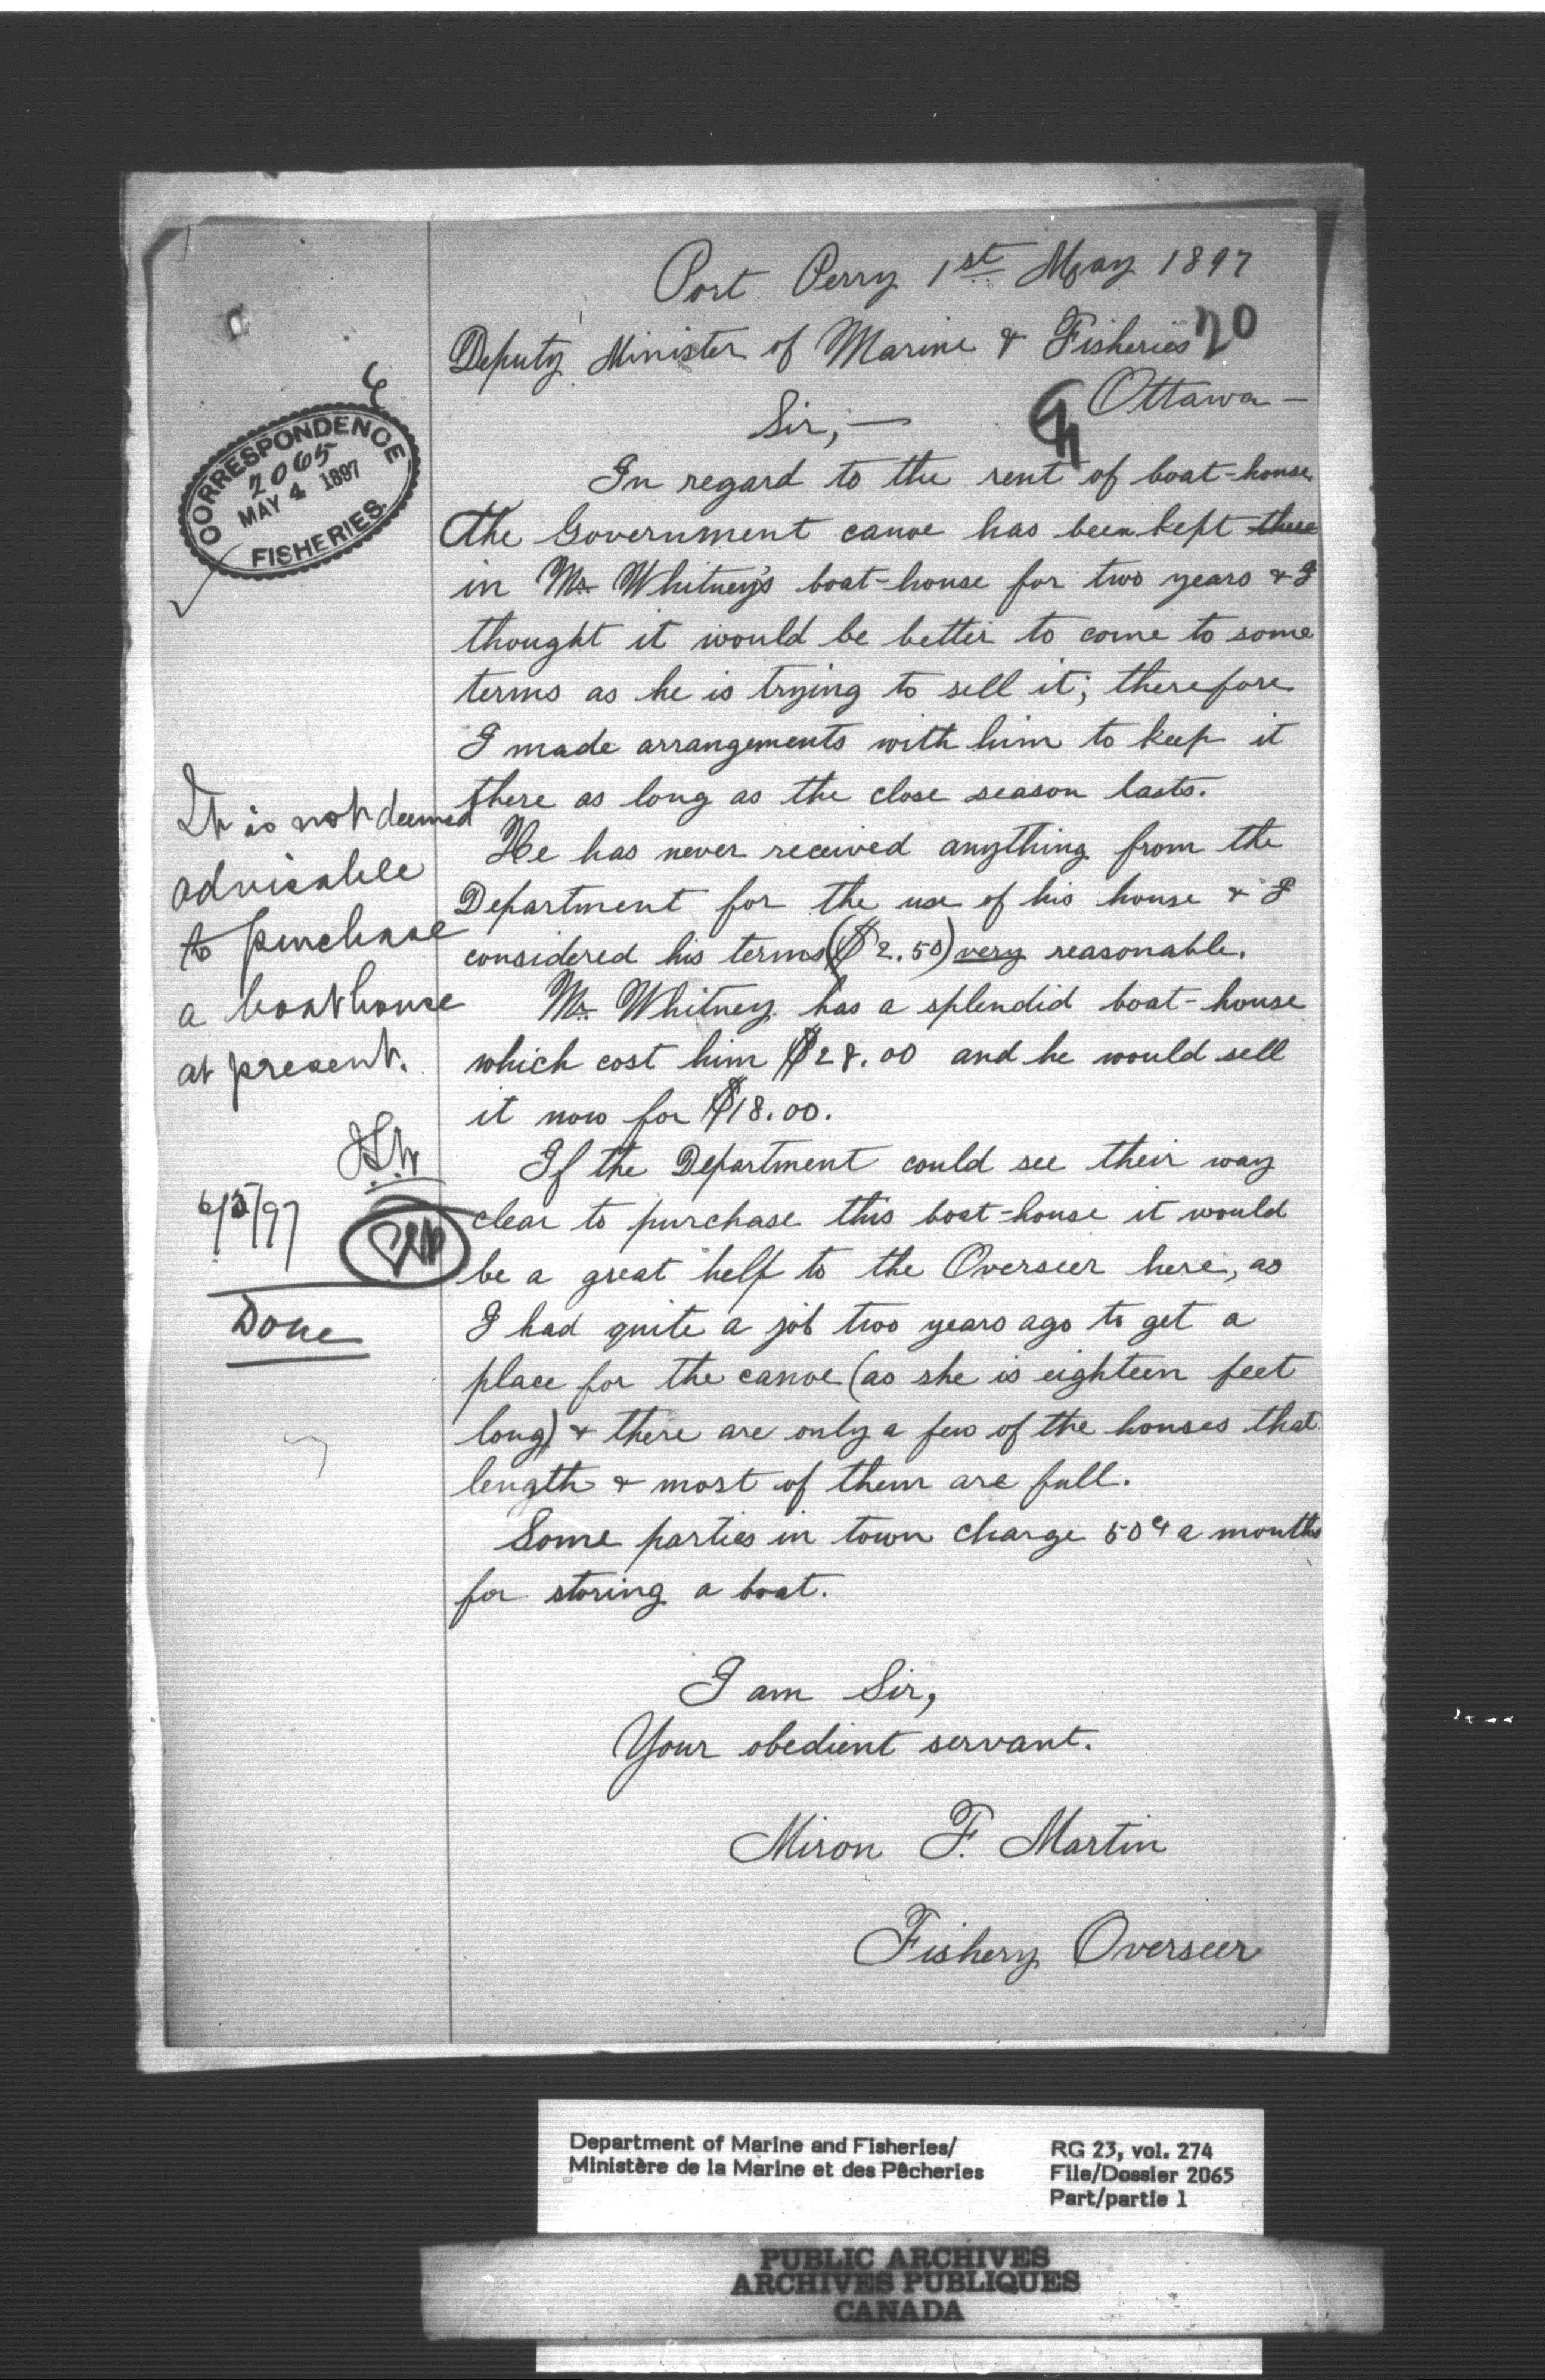 Port Perry 1st May 1897
Deputy Minister of Marine & Fisheries 20
Ottawa —
Sir, —
In regard to the rent of boat-house
the Government canoe has been kept there
in Mr Whitney's boat-house for two years & I
thought it would be better to come to some
terms as he is trying to sell it; therefore
I made arrangements with him to keep it
there as long as the close season lasts.
He has never received anything from the
Department for the use of his house & I
considered his terms ($2.50) very reasonable.
Mr Whitney has a splendid boat-house
which cost him $28.00 and he would sell
it now for $18.00.
If the Department could see their way
clear to purchase this boat-house it would
be a great help to the Overseer here, as
I had quite a job two years ago to get a
place for the canoe (as she is eighteen feet
long) & there are only a few of the houses that
length & most of them are full.
Some parties in town charge 50¢ a month
for storing a boat.
I am Sir,
Your obedient servant.
Miron F. Martin
Fishery Overseer
CORRESPONDENCE
2065
MAY 4 1897
FISHERIES.
It is not deemed
advisable
to purchase
a boathouse
at present.
6/5/97
Done
Department of Marine and Fisheries/
Ministère de la Marine et des Pêcheries
RG 23, vol. 274
File/Dossier 2065
Part/partie 1
PUBLIC ARCHIVES
ARCHIVES PUBLIQUES
CANADA